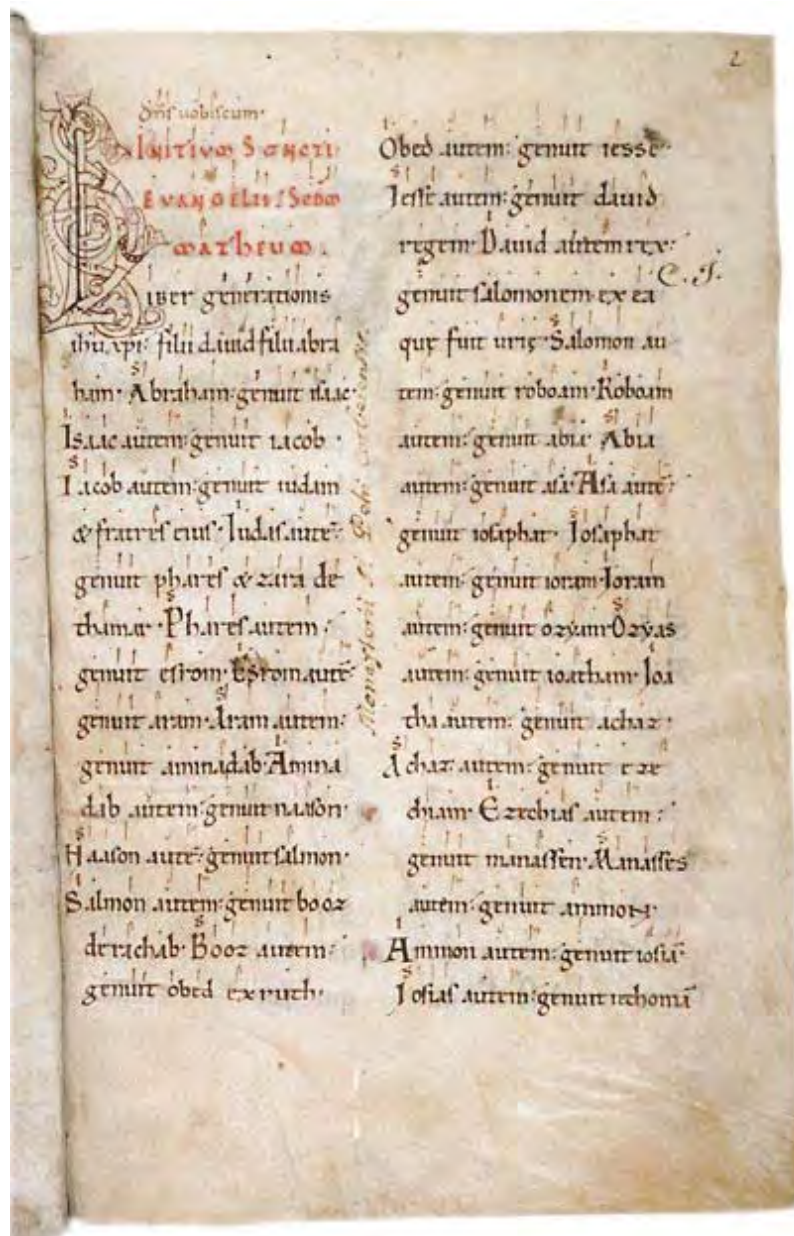 2
dn̄s uobiscum·
INITIVM SANCTI
EVANGELII SECDM
MATHEUM.
LIBER generationis
ihu xpi: filii dauid filii abra
ham· Abraham: genuit isaac·
Isaac autem: genuit iacob·
Iacob autem: genuit iudam
& fratres eius· Iudas aute͞:
genuit phares & zara de
thamar· Phares autem:
genuit esrom· Esrom aute͞:
genuit aram· Aram autem:
genuit aminadab· Amina
dab autem: genuit naason·
Naason aute͞: genuit salmon·
Salmon autem: genuit booz
de rachab· Booz autem:
genuit obed ex ruth·
Obed autem: genuit iesse·
Iesse autem: genuit dauid
regem· Dauid autem rex:
genuit salomonem ex ea
C. S.
quę fuit urię· Salomon au
tem: genuit roboam· Roboam
autem: genuit abia· Abia
autem: genuit asa· Asa aute͞:
genuit iosaphat· Iosaphat
autem: genuit ioram· Ioram
autem: genuit ozyam· Ozyas
autem: genuit ioatham· Ioa
tha autem: genuit achaz·
Achaz autem: genuit eze
chiam· Ezechias autem:
genuit manassen· Manasses
autem: genuit ammon·
Ammon autem: genuit iosia͞·
Iosias autem: genuit iechonia͞
Monasterii S.